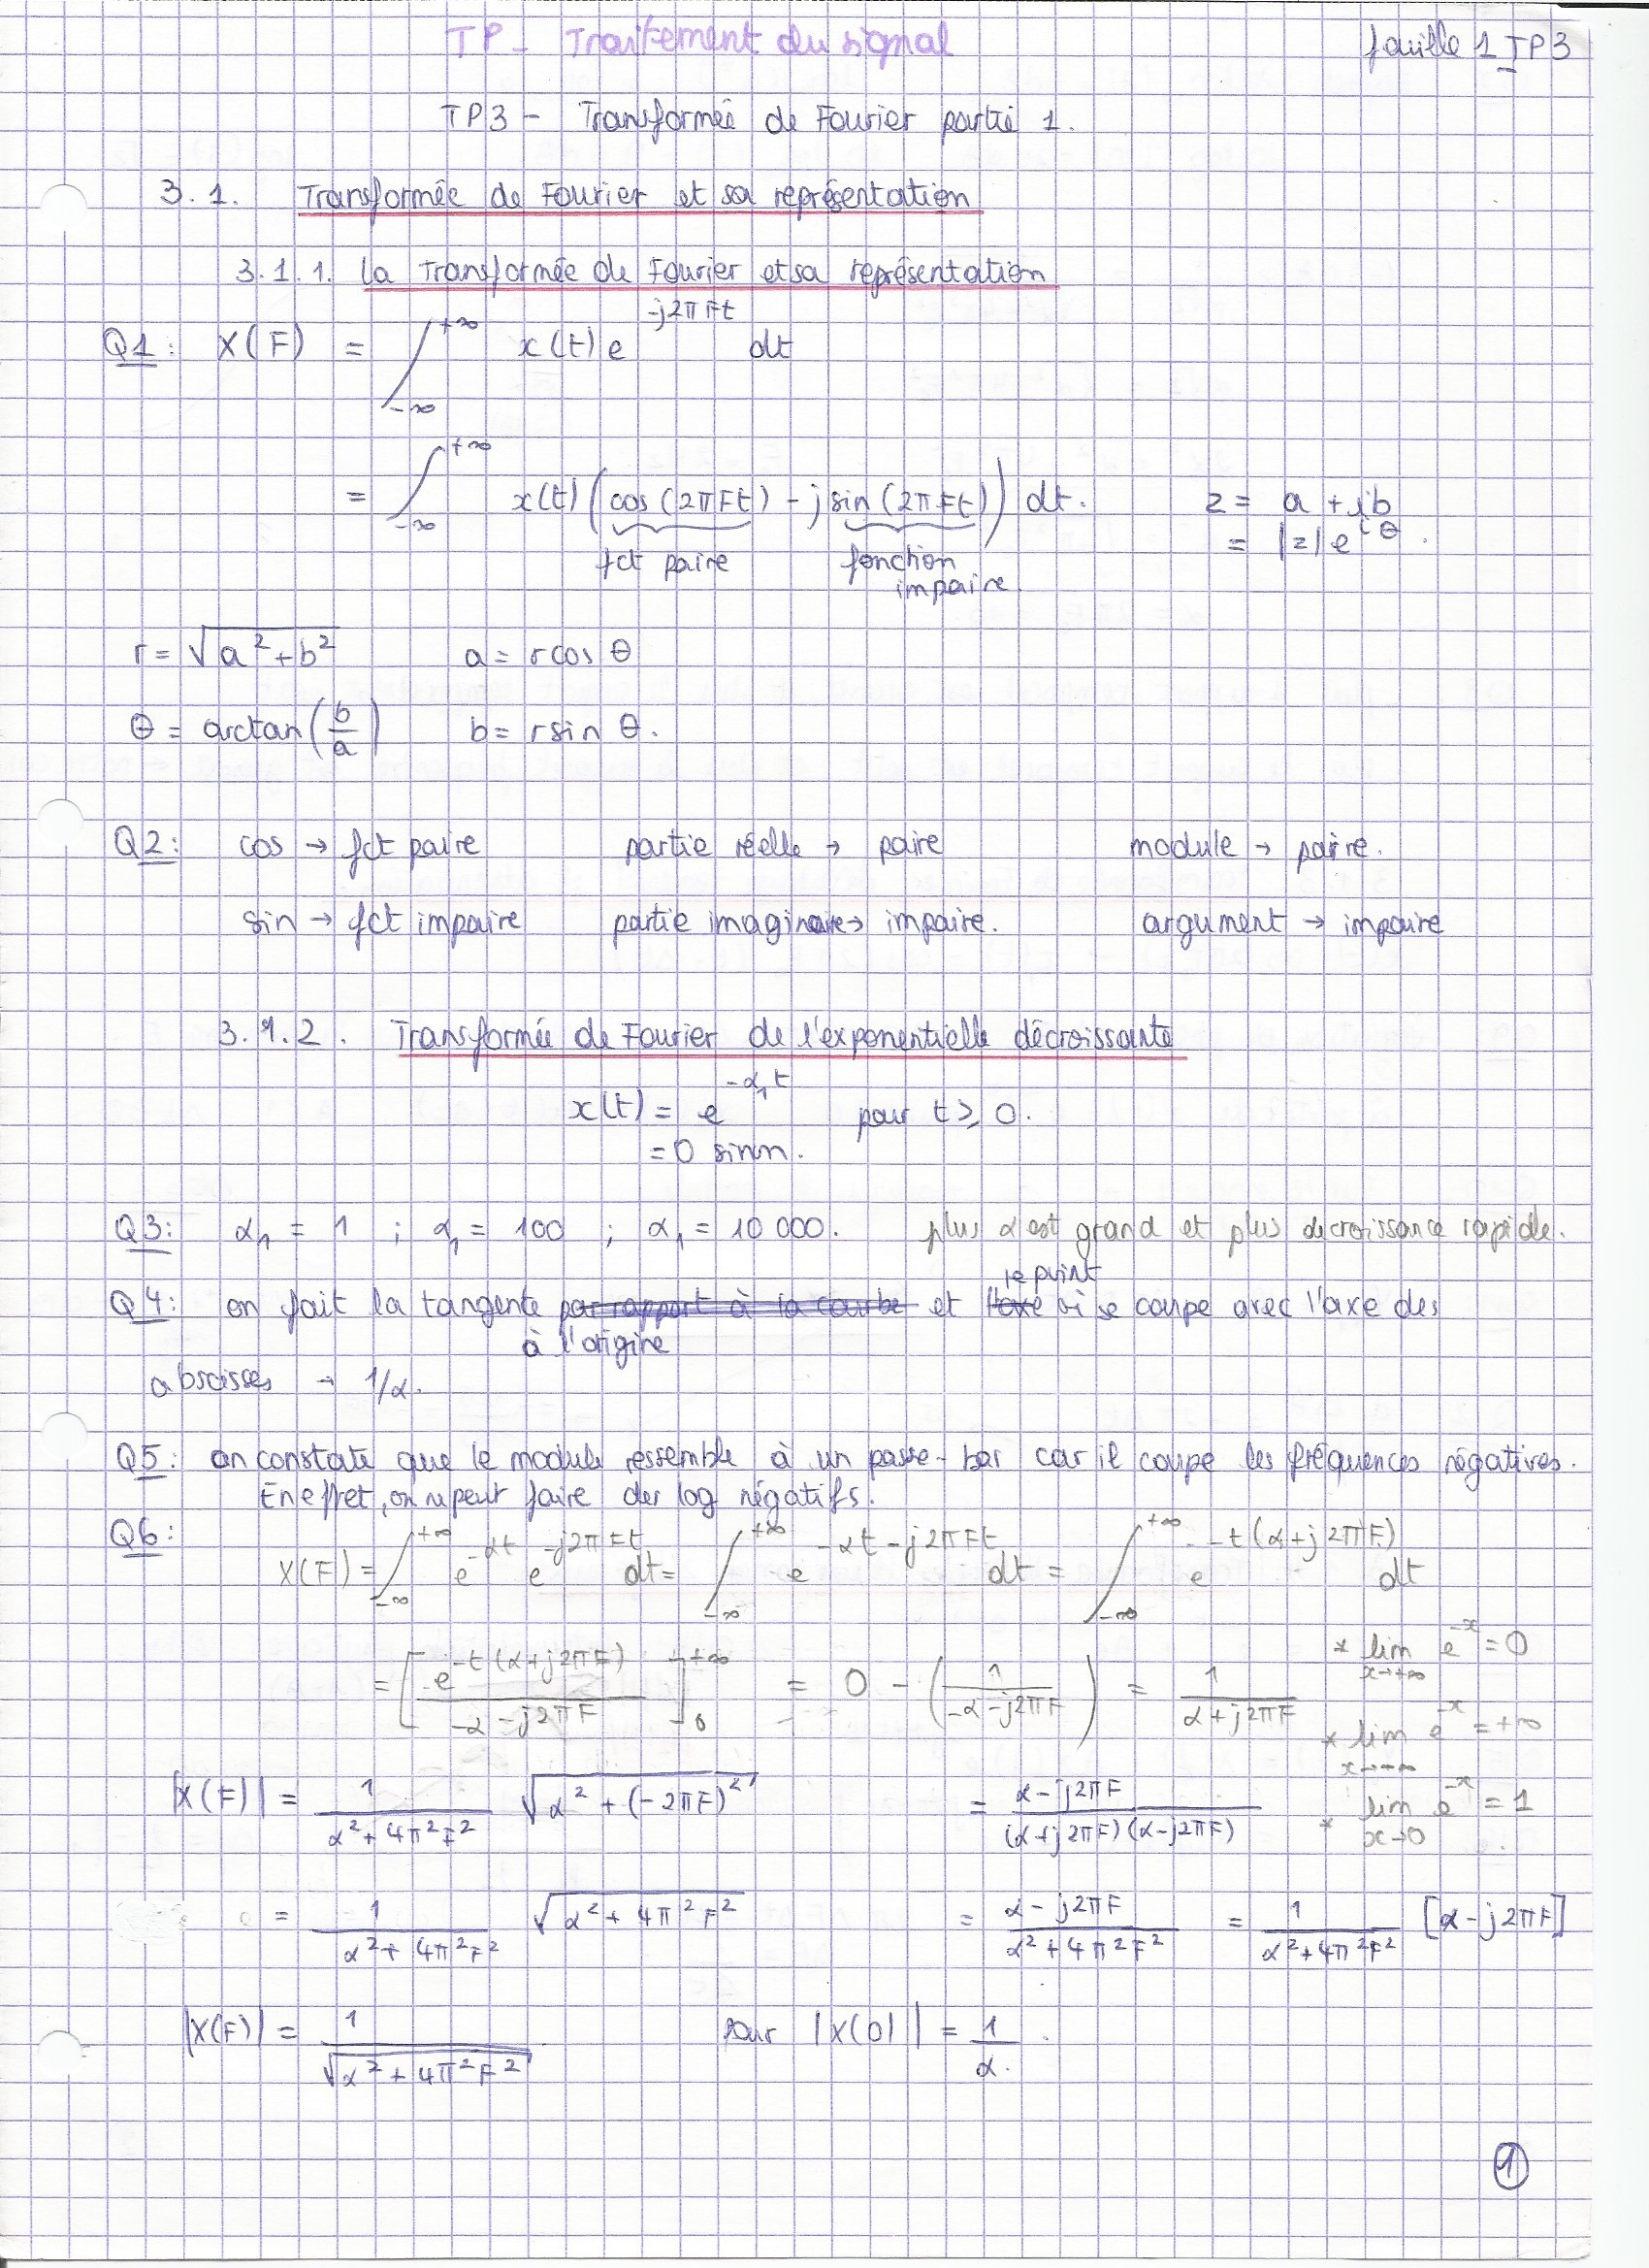 TP - Traitement du signal
feuille 1 TP3
TP3 - Transformée de Fourier partie 1.
3.1. Transformée de Fourier et sa représentation
3.1.1. la transformée de Fourier et sa représentation
Q1: X(F) = ∫_{-∞}^{+∞} x(t) e^{-j2πFt} dt
= ∫_{-∞}^{+∞} x(t) (cos(2πFt) - j sin(2πFt)) dt. z = a + jb
fct paire fonction impaire. = |z| e^{iθ}.
r = √(a² + b²) a = r cos θ
θ = arctan(b/a) b = r sin θ.
Q2: cos → fct paire partie réelle → paire module → paire.
sin → fct impaire partie imaginaire → impaire. argument → impaire
3.1.2. Transformée de Fourier de l'exponentielle décroissante
x(t) = e^{-α₁t} pour t ≥ 0.
= 0 sinon.
Q3: α₁ = 1 ; α₁ = 100 ; α₁ = 10 000. plus α est grand et plus decroissance rapide.
Q4: on fait la tangente par rapport à la courbe à l'origine et le point où se coupe avec l'axe des
abscisses → 1/α.
Q5: on constate que le module ressemble à un passe-bas car il coupe les fréquences négatives.
En effet, on ne peut faire des log négatifs.
Q6:
X(F) = ∫_{-∞}^{+∞} e^{-αt} e^{-j2πFt} dt = ∫_{-∞}^{+∞} e^{-αt-j2πFt} dt = ∫_{-∞}^{+∞} e^{-t(α+j2πF)} dt
= [e^{-t(α+j2πF)} / (-α-j2πF)]_0^{+∞} = 0 - (1/(-α-j2πF)) = 1/(α+j2πF) * lim_{x→+∞} e^{-x} = 0
* lim_{x→-∞} e^{-x} = +∞
|X(F)| = 1/(α²+4π²F²) √(α² + (-2πF)²) = (α-j2πF)/((α+j2πF)(α-j2πF)) * lim_{x→0} e^{-x} = 1
= 1/(α²+4π²F²) √(α²+4π²F²) = (α-j2πF)/(α²+4π²F²) = 1/(α²+4π²F²) [α-j2πF]
|X(F)| = 1/√(α²+4π²F²) pour |X(0)| = 1/α.
1